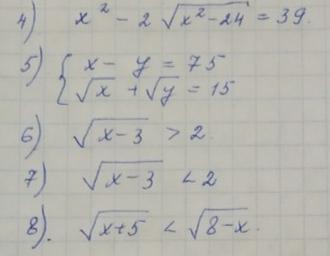 4) x² - 2 √(x²-24) = 39.
5) { x - y = 75
√x + √y = 15
6) √(x-3) > 2.
7) √(x-3) < 2
8). √(x+5) < √(8-x).